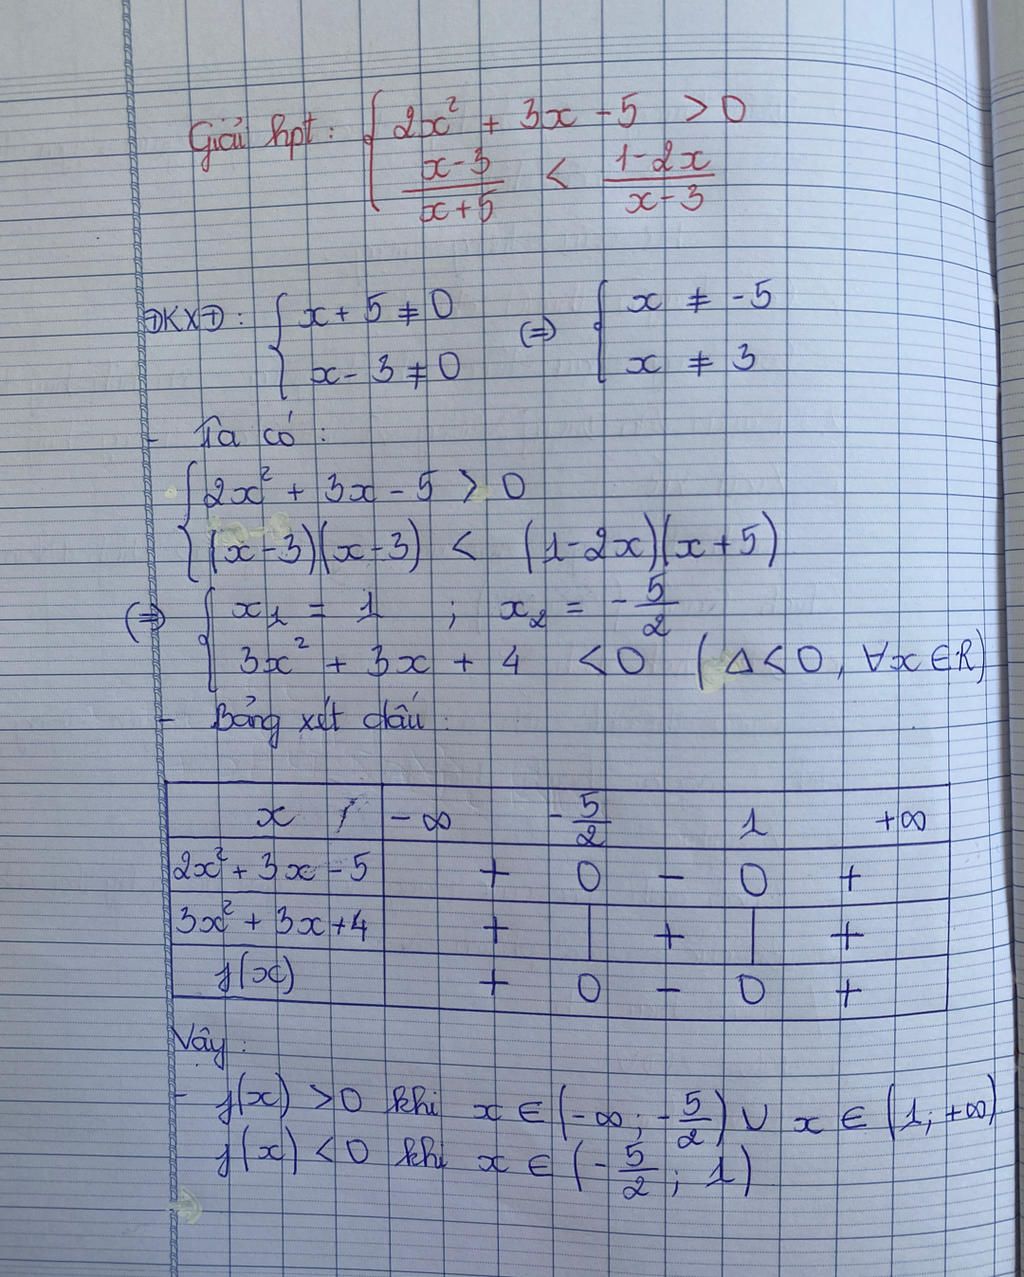 Giải hpt: { 2x² + 3x - 5 > 0
(x-3)/(x+5) < (1-2x)/(x-3)
ĐKXĐ: { x + 5 ≠ 0 (=) { x ≠ -5
x - 3 ≠ 0 x ≠ 3
- Ta có:
{ 2x² + 3x - 5 > 0
(x-3)(x-3) < (1-2x)(x+5)
(=) { x₁ = 1 ; x₂ = -5/2
3x² + 3x + 4 < 0 (Δ < 0, ∀x ∈ R)
- Bảng xét dấu:
x -∞ -5/2 1 +∞
2x² + 3x - 5 + 0 - 0 +
3x² + 3x + 4 + | + | +
f(x) + 0 - 0 +
Vậy:
- f(x) > 0 khi x ∈ (-∞; -5/2) ∪ x ∈ (1; +∞)
f(x) < 0 khi x ∈ (-5/2; 1)